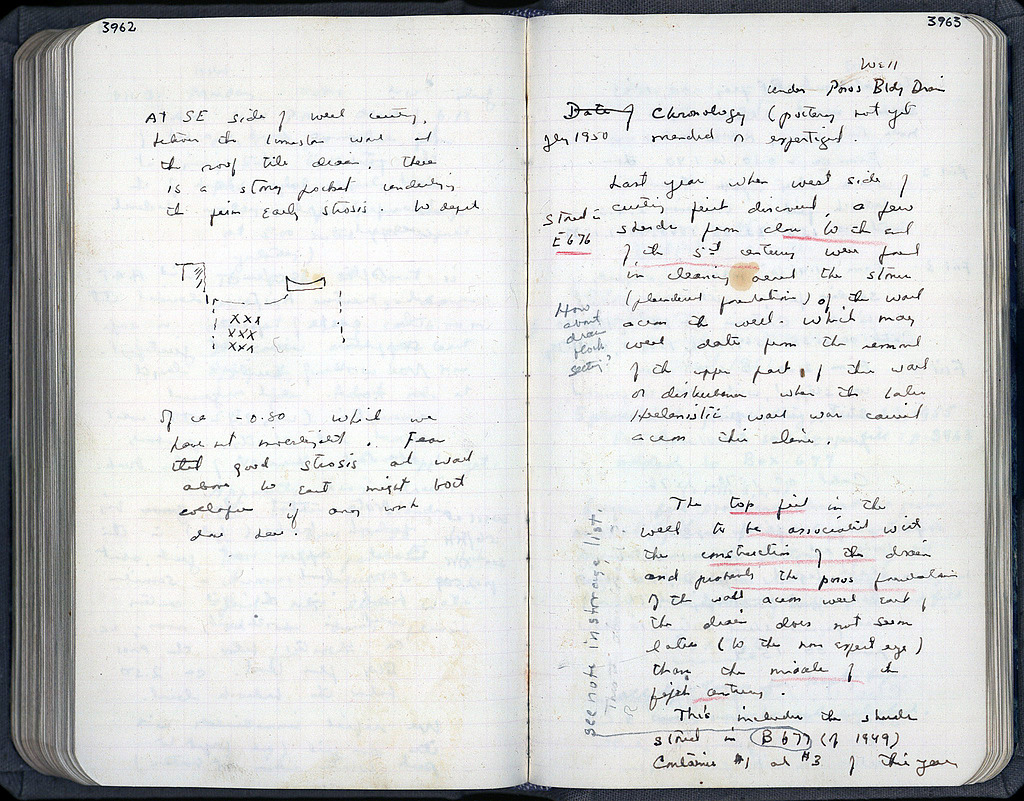 3962
At SE side of well cutting,
between the limestone wall and
the roof tile drain, there
is a strong pocket underlying
the firm early strosis. To depth
XXX
XXX
XXX
of ca -0.80 which we
have not investigated. Fear
that good strosis and wall
above to East might both
collapse if any work
done here.
3963
Well
under Poros Bldg Drain
Date of Chronology (pottery not yet
July 1950 mended or expertized.
Last year when west side of
cutting first discovered, a few
Stored in
E 676
sherds from close to the end
of the 5th century were found
in cleaning around the stones
(plundered foundation) of the wall
How
about
drain
block
setting?
across the well. Which may
well date from the removal
of the upper part of this wall
or disturbance when the later
Hellenistic wall was carried
across this line.
The top fill in the
well to be associated with
the construction of the drain
and probably the poros foundation
of the wall across well east of
the drain does not seem
later (to the non expert eye)
than the middle of the
fifth century.
see note in storage list.
This includes the sherds
stored in B 677 (of 1949)
Contains #1 and #3 of this year